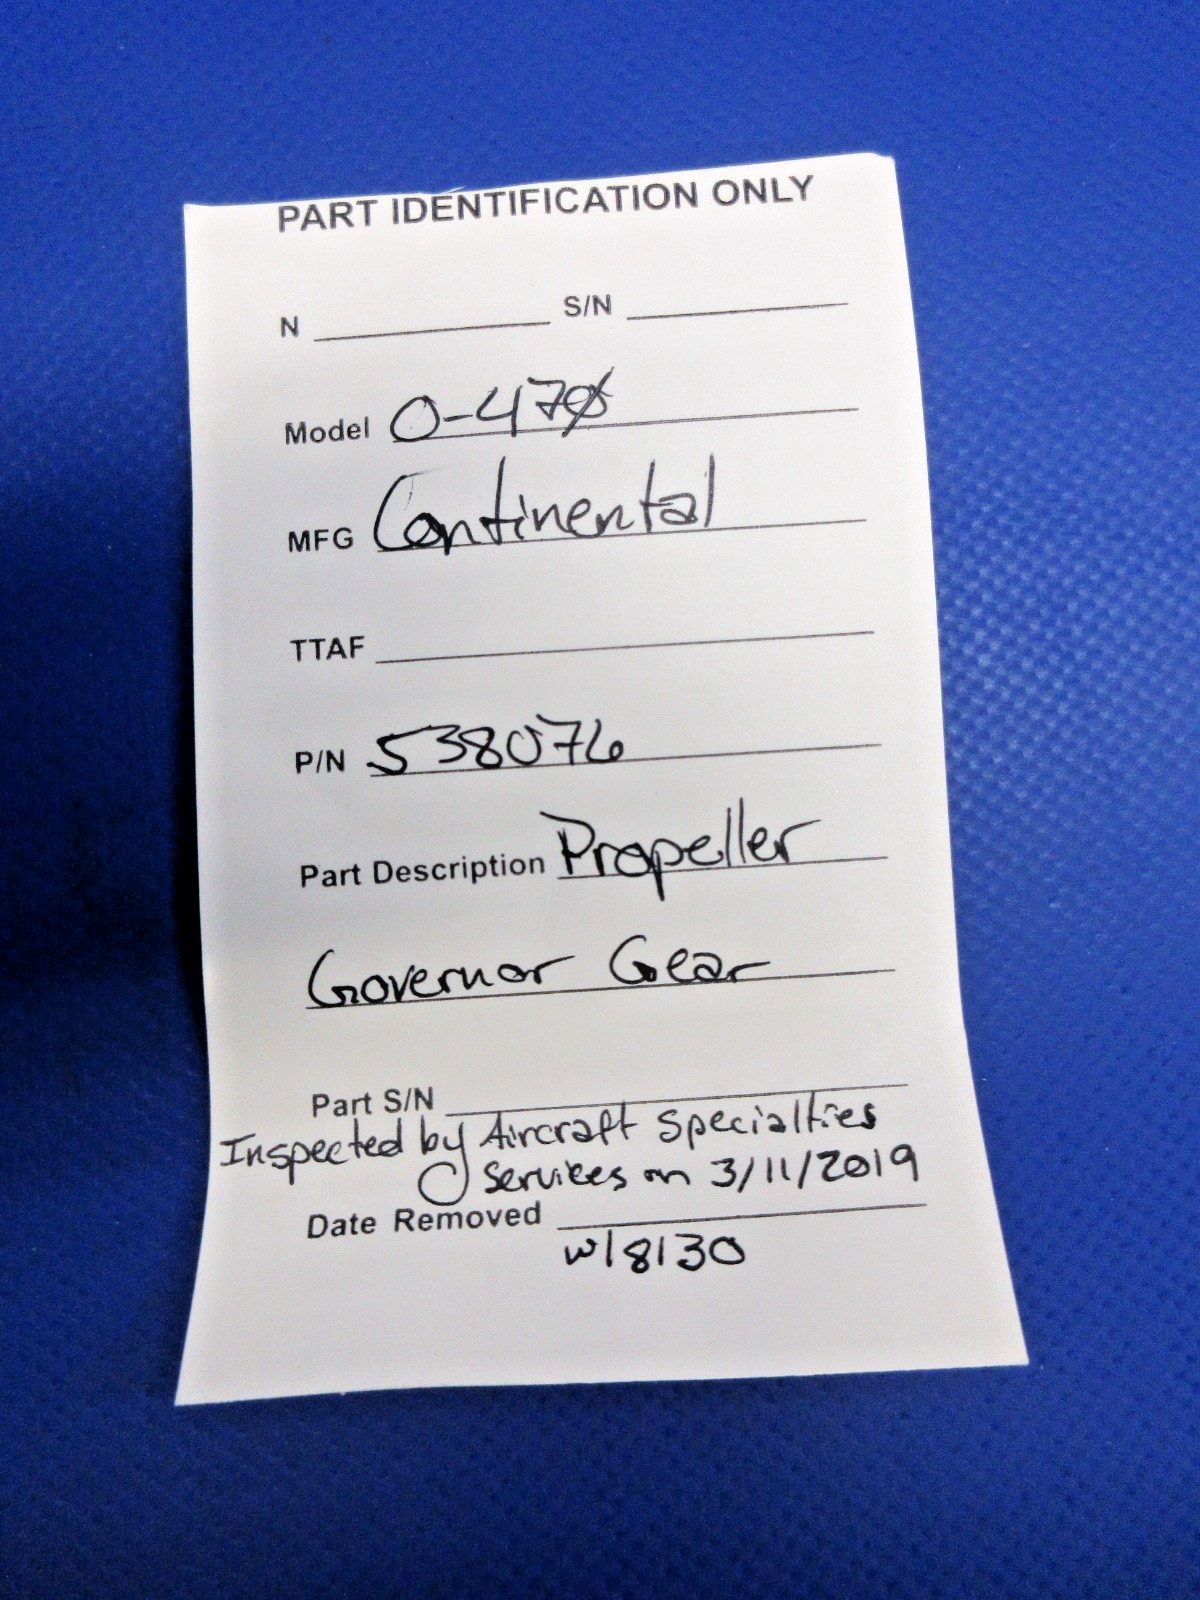 PART IDENTIFICATION ONLY
N ____________ S/N ____________
Model O-470
MFG Continental
TTAF ____________
P/N 538076
Part Description Propeller
Governor Gear
Part S/N ____________
Inspected by Aircraft Specialties
Services on 3/11/2019
Date Removed ____________
w/8130